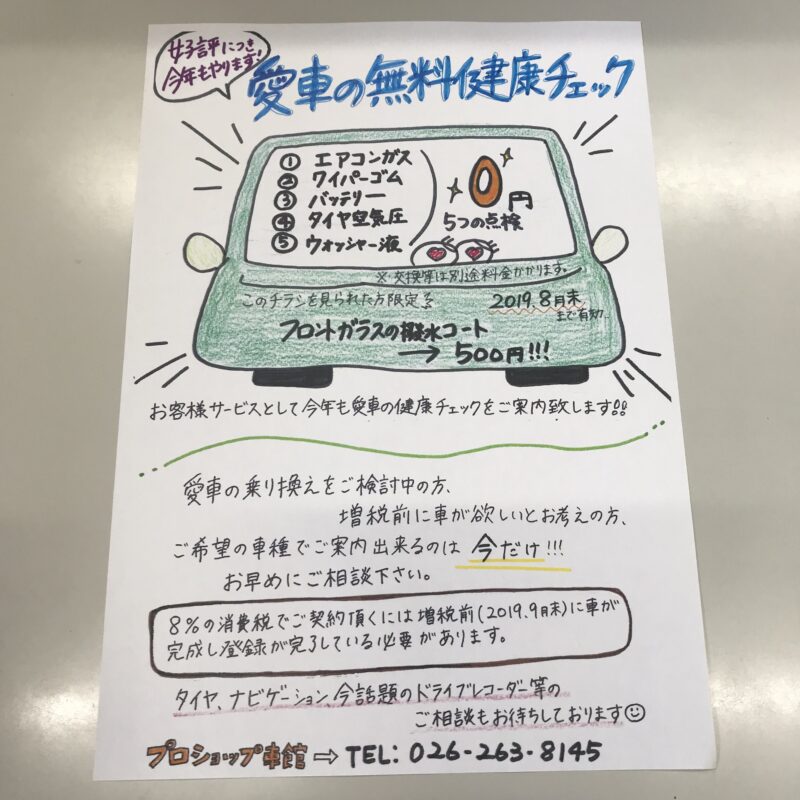 好評につき
今年もやります!
愛車の無料健康チェック
① エアコンガス
② ワイパーゴム
③ バッテリー
④ タイヤ空気圧
⑤ ウォッシャー液
0円
5つの点検
※交換等は別途料金かかります。
このチラシを見られた方限定
2019.8月末
まで有効
フロントガラスの撥水コート
→ 500円!!!
お客様サービスとして今年も愛車の健康チェックをご案内致します!!
愛車の乗り換えをご検討中の方、
増税前に車が欲しいとお考えの方、
ご希望の車種でご案内出来るのは 今だけ!!!
お早めにご相談下さい。
8%の消費税でご契約頂くには増税前(2019.9月末)に車が
完成し登録が完了している必要があります。
タイヤ、ナビゲーション、今話題のドライブレコーダー等の
ご相談もお待ちしております☺
プロショップ車館⇨TEL: 026-263-8145